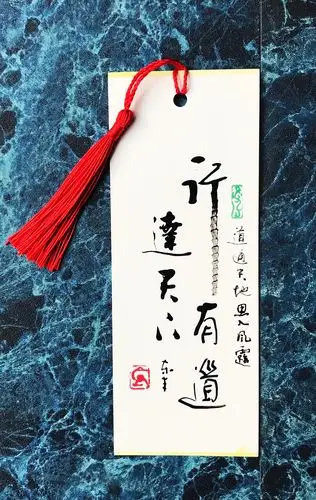 道通天地思入風
行有道
達天下